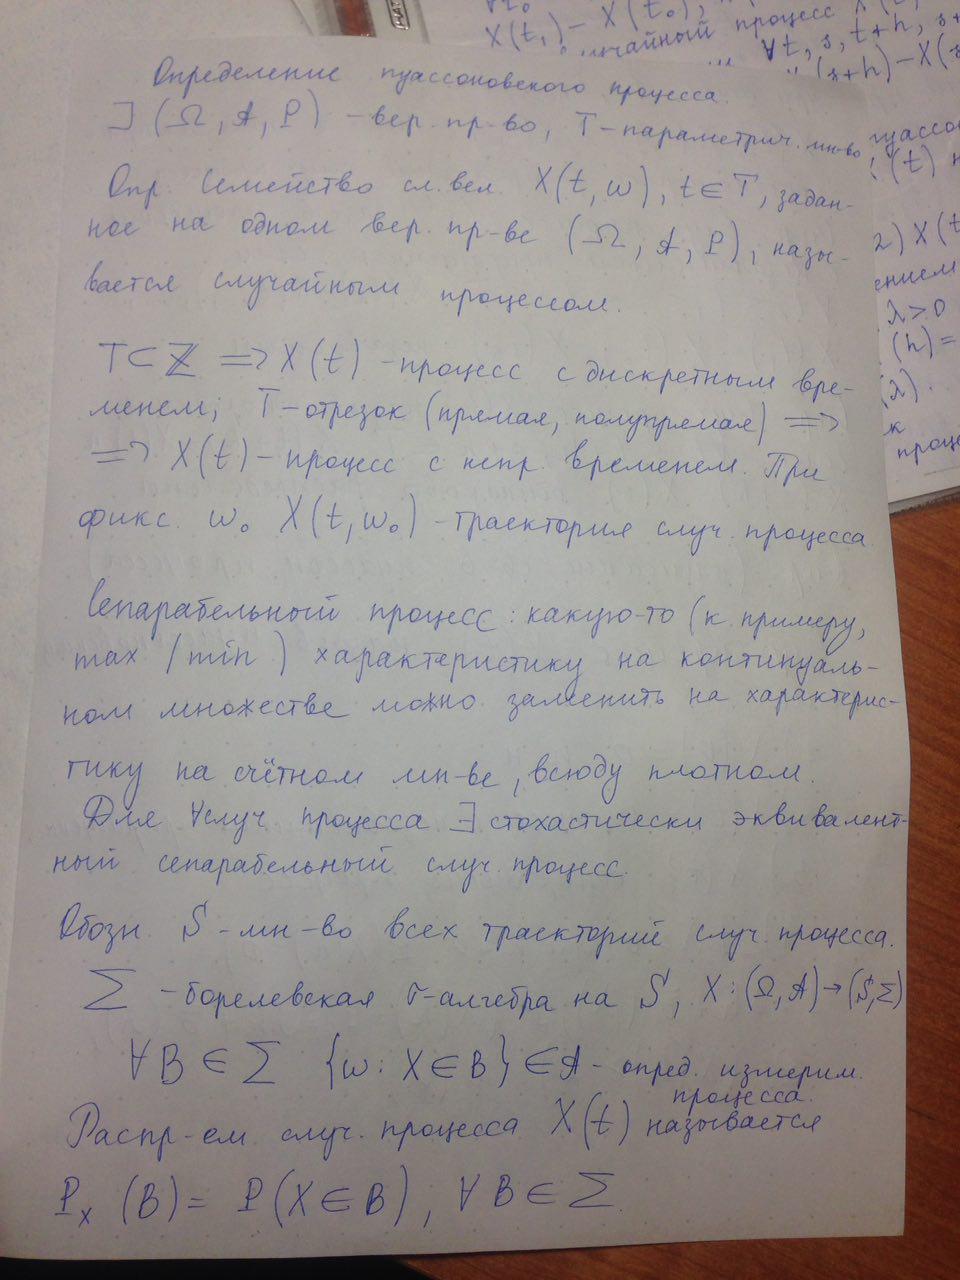 Определение пуассоновского процесса.
∃ (Ω, 𝒜, P) – вер. пр-во, T – параметрич. мн-во
Опр. Семейство сл. вел. X(t, ω), t ∈ T, задан-
ное на одном вер. пр-ве (Ω, 𝒜, P), назы-
вается случайным процессом.
T ⊂ ℤ ⟹ X(t) – процесс с дискретным вре-
менем; T – отрезок (прямая, полупрямая) ⟹
⟹ X(t) – процесс с непр. временем. При
фикс. ω₀ X(t, ω₀) – траектория случ. процесса
Сепарабельный процесс: какую-то (к примеру,
max / min) характеристику на континуаль-
ном множестве можно заменить на характерис-
тику на счётном мн-ве, всюду плотном.
Для ∀ случ процесса ∃ стохастически эквивалент-
ный сепарабельный случ. процесс.
Обозн. S – мн-во всех траекторий случ. процесса.
Σ – борелевская σ-алгебра на S, X : (Ω, 𝒜) → (S, Σ)
∀ B ∈ Σ {ω : X ∈ B} ∈ 𝒜 – опред. измерим.
процесса.
Распр-ем случ. процесса X(t) называется
Pₓ (B) = P(X ∈ B), ∀ B ∈ Σ
X(t₁) – X(t₀),
процесс
∀t, s, t+h,
(s+h) – X(
(t)
2) X(t
λ > 0
(h) =
(λ).
к
проце